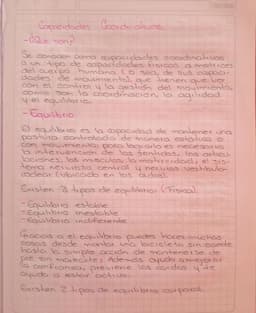 Capacidades Coordinativas
-¿Qué son?
Se conoce como capacidades coordinativas
a un tipo de capacidades físicas o motrices
del cuerpo humano (o sea, de sus capaci-
dades de movimiento), que tienen que ver
con el control y la gestión del movimiento,
como son la coordinación, la agilidad
y el equilibrio.
-Equilibrio
El equilibrio es la capacidad de mantener una
postura controlada de manera estática o
con movimiento, para lograrlo es necesario
la intervención de los sentidos, las articu-
laciones, los músculos, la motricidad, el sis-
tema nervioso central y nervioso vestibulo-
coclear (ubicado en los oídos).
Existen 3 tipos de equilibrio: (Físico)
-Equilibrio estable
-Equilibrio inestable
-Equilibrio indiferente
Gracias a el equilibrio puedes hacer muchas
cosas desde montar una bicicleta sin caerte
hasta la simple acción de mantenerse de
pie sin marearte; Además ayuda a mejorar
la confianza, previene las caídas y te
ayuda a estar activo.
Existen 2 tipos de equilibrio corporal.